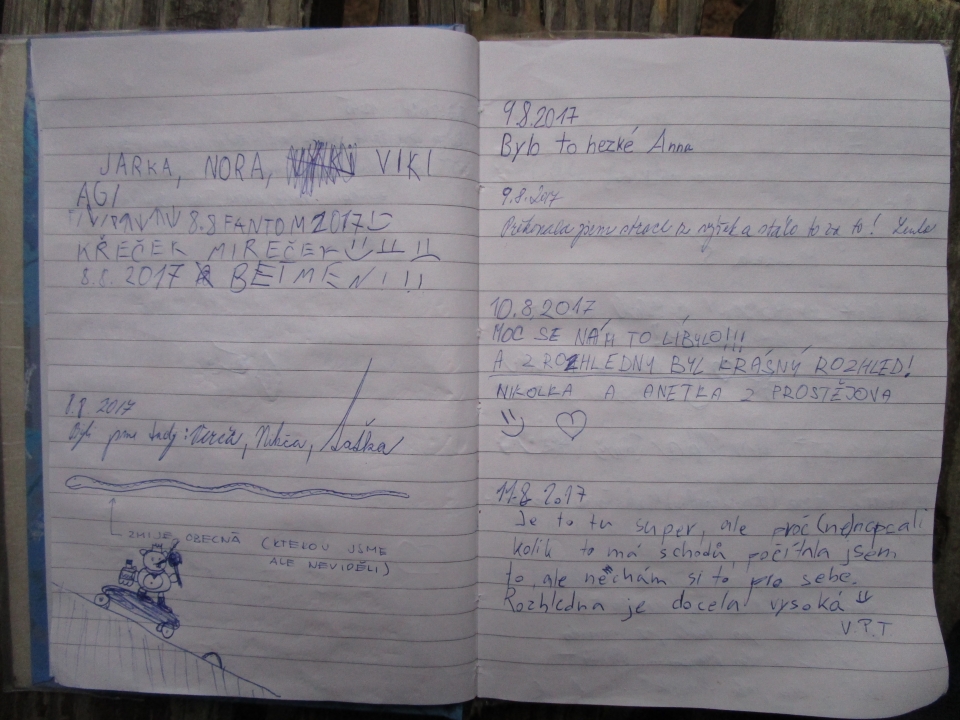 JARKA, NORA, VIKI
AGI
8.8 FANTOM 2017
KŘEČEK MIREČEK
8.8. 2017 BEIMEN!!!
8.8. 2017
Byli jsme tady: Verča, Nikča, Laďka
ZMIJE OBECNÁ (KTEROU JSME
ALE NEVIDĚLI)
9.8.2017
Bylo to hezké Anna
9.8.2017
Překonala jsem strach z výšek a stálo to za to!
10.8.2017
MOC SE NÁM TO LÍBILO!!!
A Z ROZHLEDNY BYL KRÁSNÝ ROZHLED!
NIKOLKA A ANETKA Z PROSTĚJOVA
11.8. 2017
Je to tu super, ale proč (ne)napsali
kolik to má schodů, počítala jsem
to, ale nechám si to pro sebe.
Rozhledna je docela vysoká
V.P.T